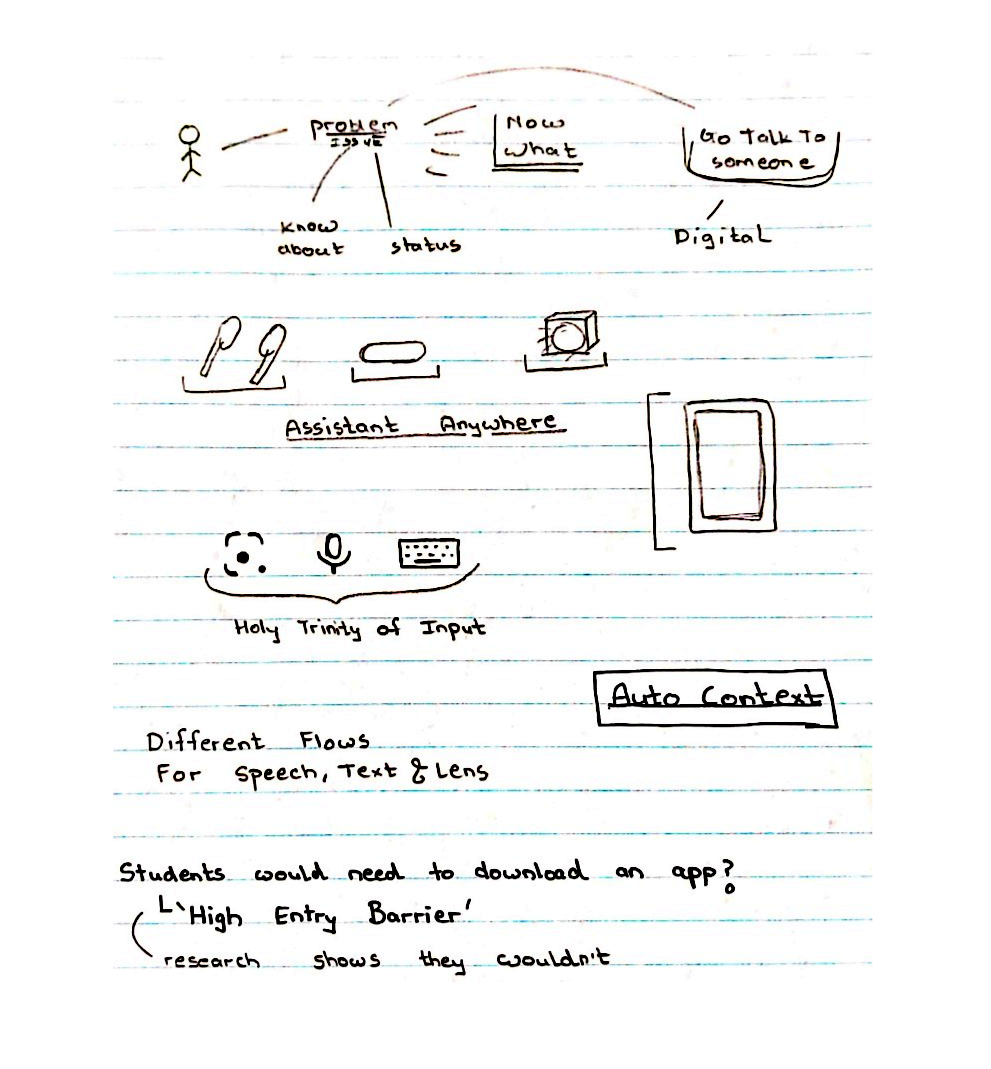 problem
Issue
Now
what
Go Talk To
someone
know
about
status
Digital
Assistant Anywhere
Holy Trinity of Input
Auto Context
Different Flows
For Speech, Text & Lens
Students would need to download an app?
'High Entry Barrier'
research shows they wouldn't